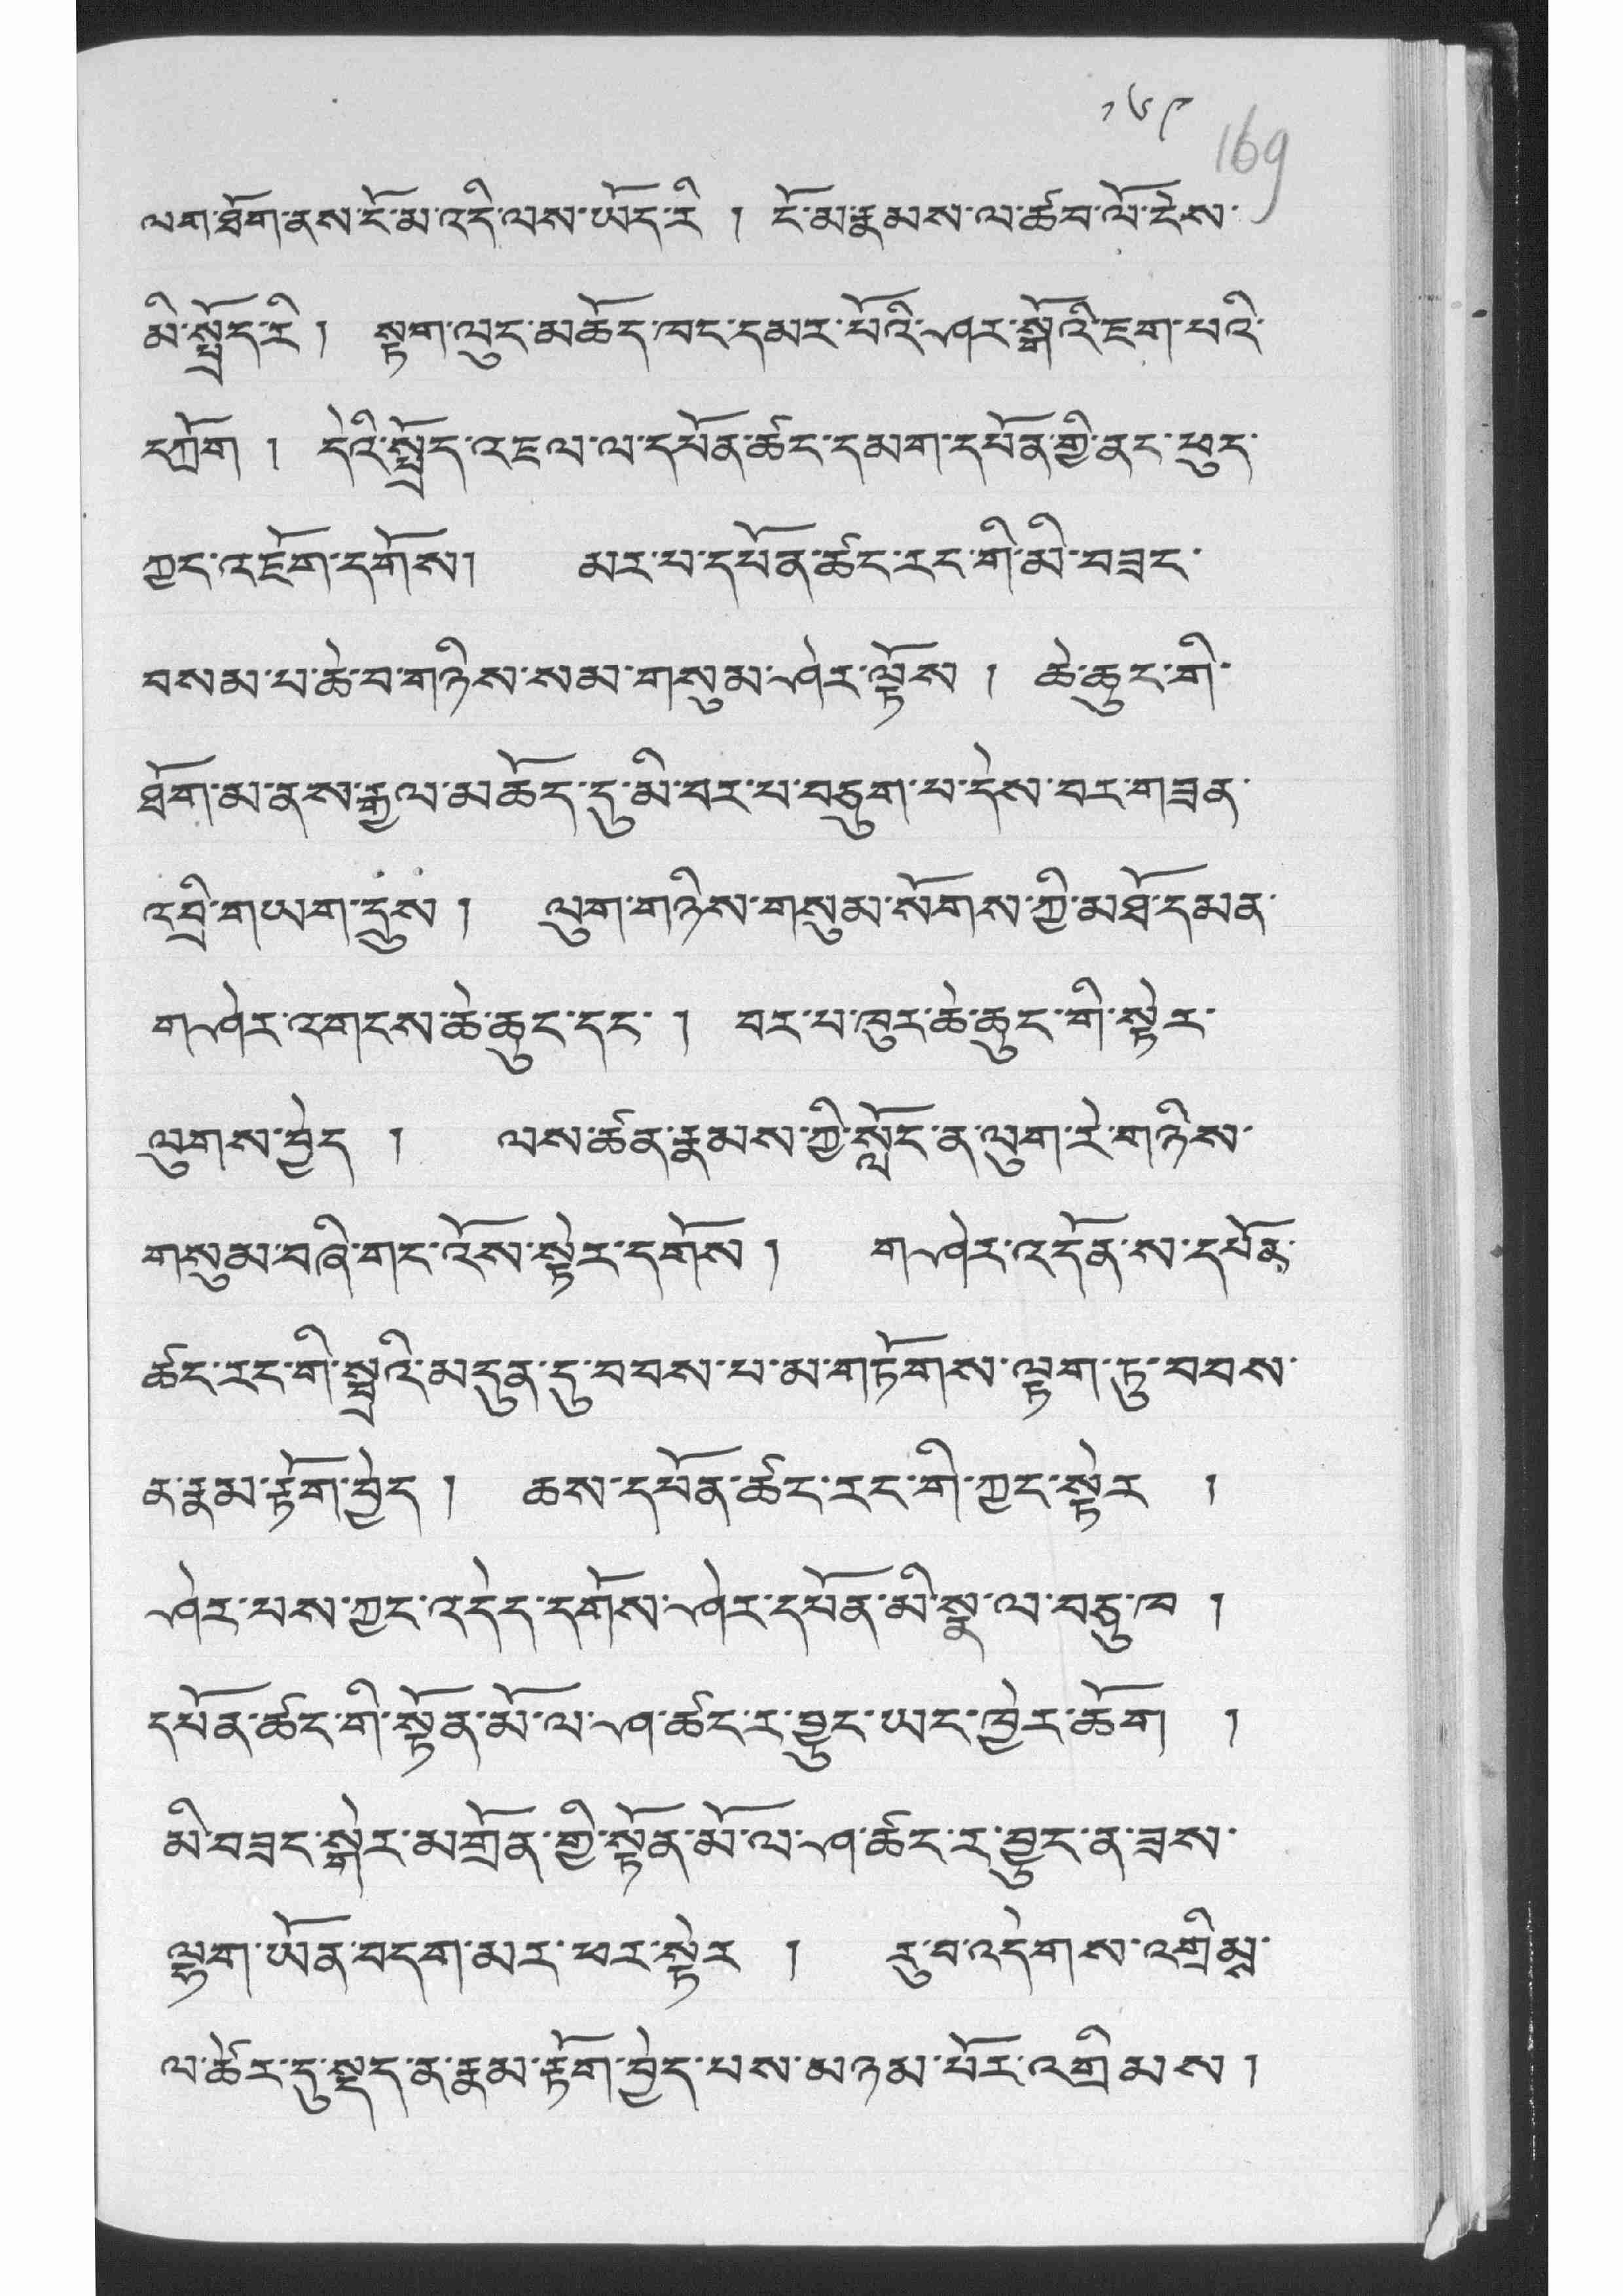 ༡༦༩
169
ལག་ཐོག་ནས་ངོ་མ་འདི་ལས་ཡོད་རི། ངོ་མ་རྣམས་ལ་ཚབ་ལོ་ངེས་
མི་སྤྲོད་རི། སྟག་ལུང་མཆོད་ཁང་དམར་པོའི་ཤར་སྒོའི་ཇག་པའི་
དཀྲོག། དེའི་སྤྲོད་འཇལ་ལ་དཔོན་ཚང་དམག་དཔོན་གྱི་ནང་ཕུད་
ཀྱང་འཇོག་དགོས། མར་པ་དཔོན་ཚང་རང་གི་མི་བཟང་
བསམ་པ་ཆེ་བ་གཉིས་སམ་གསུམ་ཤེར་ལྟོས། ཆེ་ཆུང་གི་
ཐོག་མ་ནས་རྒྱལ་མཆོད་དུ་མི་བར་པ་བཅུག་པ་དེས་བར་གཟན་
འབྲི་གཡག་དྲུས། ལུག་གཉིས་གསུམ་སོགས་ཀྱི་མཐོ་དམན་
གཤེར་འགངས་ཆེ་ཆུང་དང་། བར་པ་ཁུར་ཆེ་ཆུང་གི་སྟེར་
ལུགས་བྱེད། ལས་ཚན་རྣམས་ཀྱི་སློང་ན་ལུག་རེ་གཉིས་
གསུམ་བཞི་གང་འོས་སྟེར་དགོས། གཤེར་འདོན་ས་དཔོན་
ཚང་རང་གི་སྦྲའི་མདུན་དུ་བབས་པ་མ་གཏོགས་ལྟག་ཏུ་བབས་
ན་རྣམ་རྟོག་བྱེད། ཆས་དཔོན་ཚང་རང་གི་ཀྱང་སྟེར།
ཤེར་པས་ཀྱང་འདེད་དགོས་ཤེར་དཔོན་མི་སྣ་ལ་བཅུ་ཁ།
དཔོན་ཚང་གི་སྟོན་མོ་ལ་ཤ་ཚང་ར་བྱུང་ཡང་ཁྱེར་ཆོག།
མི་བཟང་སྒེར་མགྲོན་གྱི་སྟོན་མོ་ལ་ཤ་ཚང་ར་བྱུང་ན་ཟས་
ལྷག་ཡོན་བདག་མར་ཕར་སྟེར། རུ་བ་འདེགས་འགྲིམ
ལ་ཚེར་དུ་སྡད་ན་རྣམ་རྟོག་བྱེད་པས་མཉམ་པོར་འགྲིམས།